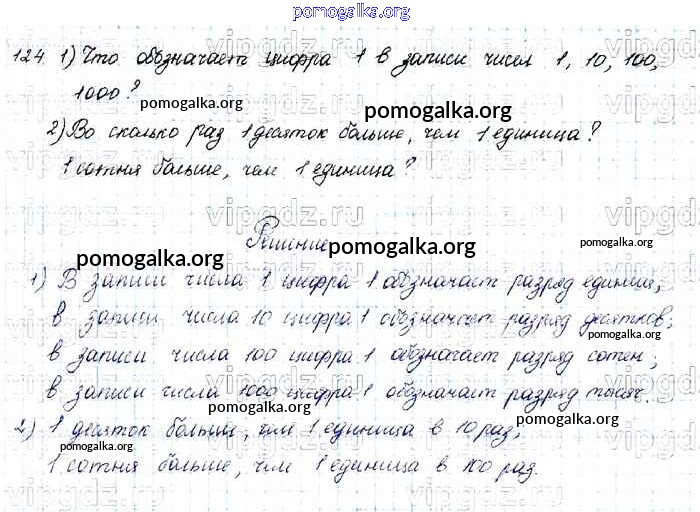 pomogalka.org
124. 1) Что обозначает цифра 1 в записи чисел 1, 10, 100,
1000?
pomogalka.org
pomogalka.org
2) Во сколько раз 1 десяток больше, чем 1 единица?
1 сотня больше, чем 1 единица?
vipgdz.ru
Решение
pomogalka.org
pomogalka.org
1) В записи числа 1 цифра 1 обозначает разряд единиц;
в записи числа 10 цифра 1 обозначает разряд десятков;
pomogalka.org
в записи числа 100 цифра 1 обозначает разряд сотен;
в записи числа 1000 цифра 1 обозначает разряд тысяч.
pomogalka.org
2) 1 десяток больше, чем 1 единица в 10 раз;
pomogalka.org
pomogalka.org
1 сотня больше, чем 1 единица в 100 раз.